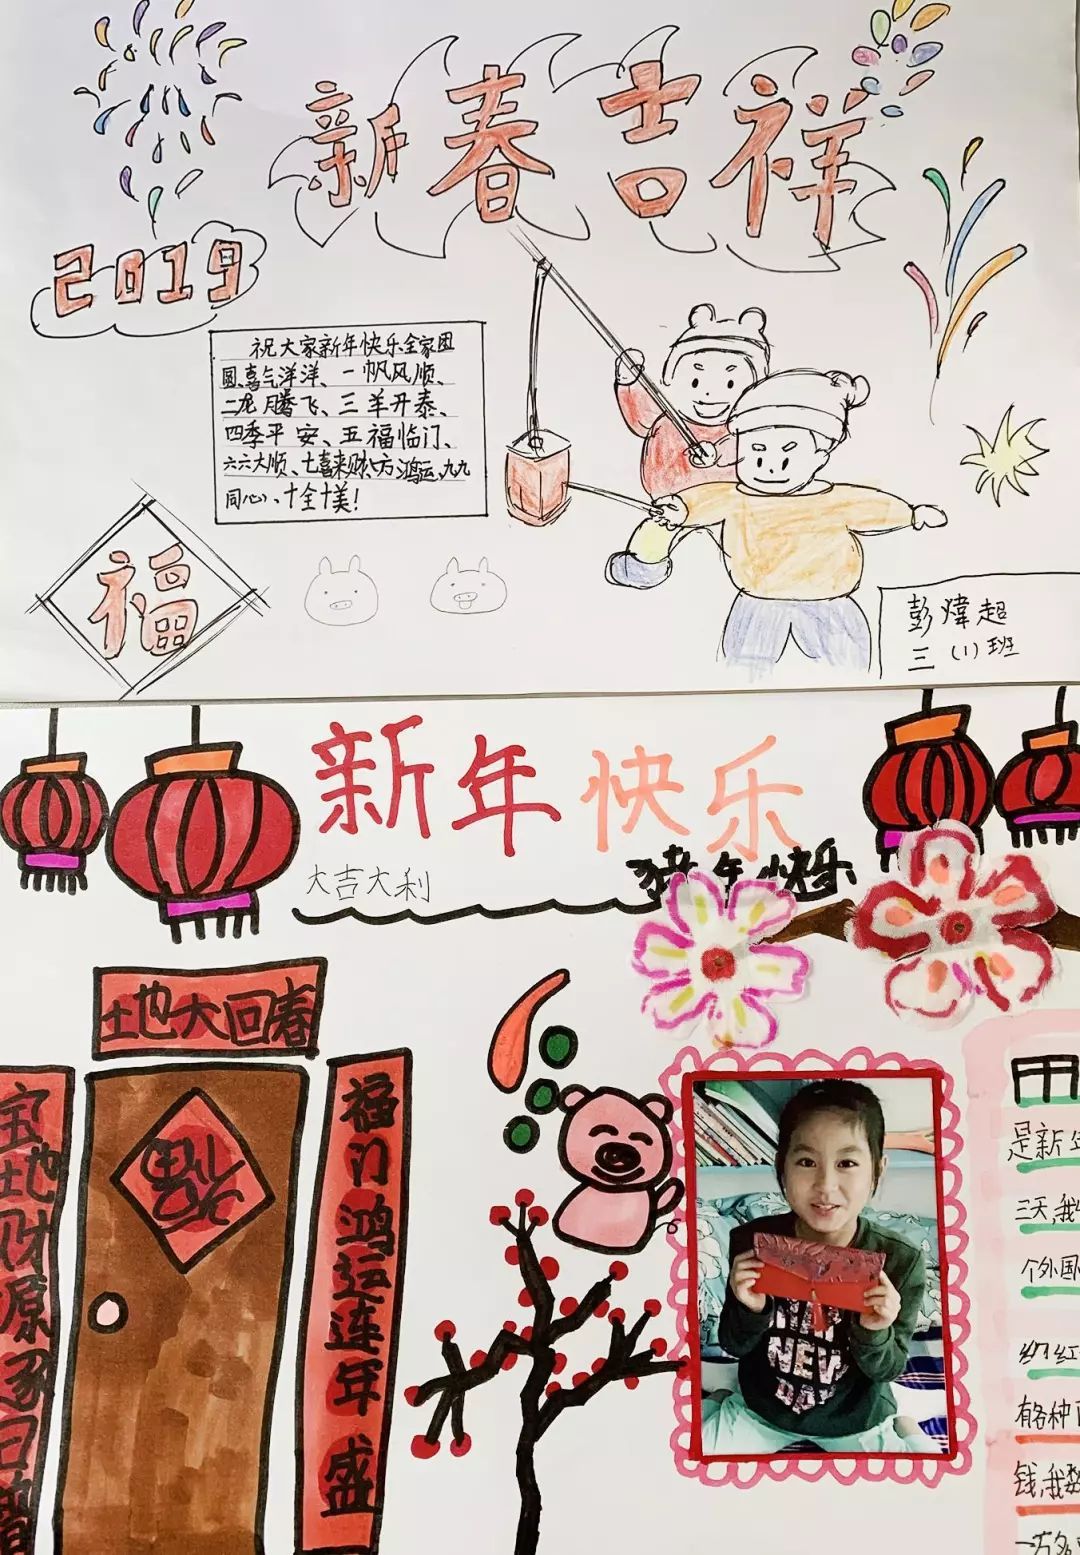 新春吉祥
2019
祝大家新年快乐全家团
圆、喜气洋洋、一帆风顺、
二龙腾飞、三羊开泰、
四季平安、五福临门、
六六大顺、七喜来财、八方鸿运、九九
同心、十全十美!
福
彭煒超
三(1)班
新年快乐
大吉大利
猪年快乐
土地大回春
宝地财源逐日
福门鸿运连年盛
福
是新年
三天,我
个外国
红
有各种
钱,我数